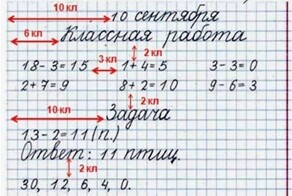 10 кл 10 сентября
6 кл Классная работа
2 кл
18-3=15 3 кл 1+4=5 3-3=0
2+7=9 8+2=10 9-6=3
2 кл
10 кл Задача
13-2=11(п.)
Ответ: 11 птиц.
2 кл
30, 12, 6, 4, 0.